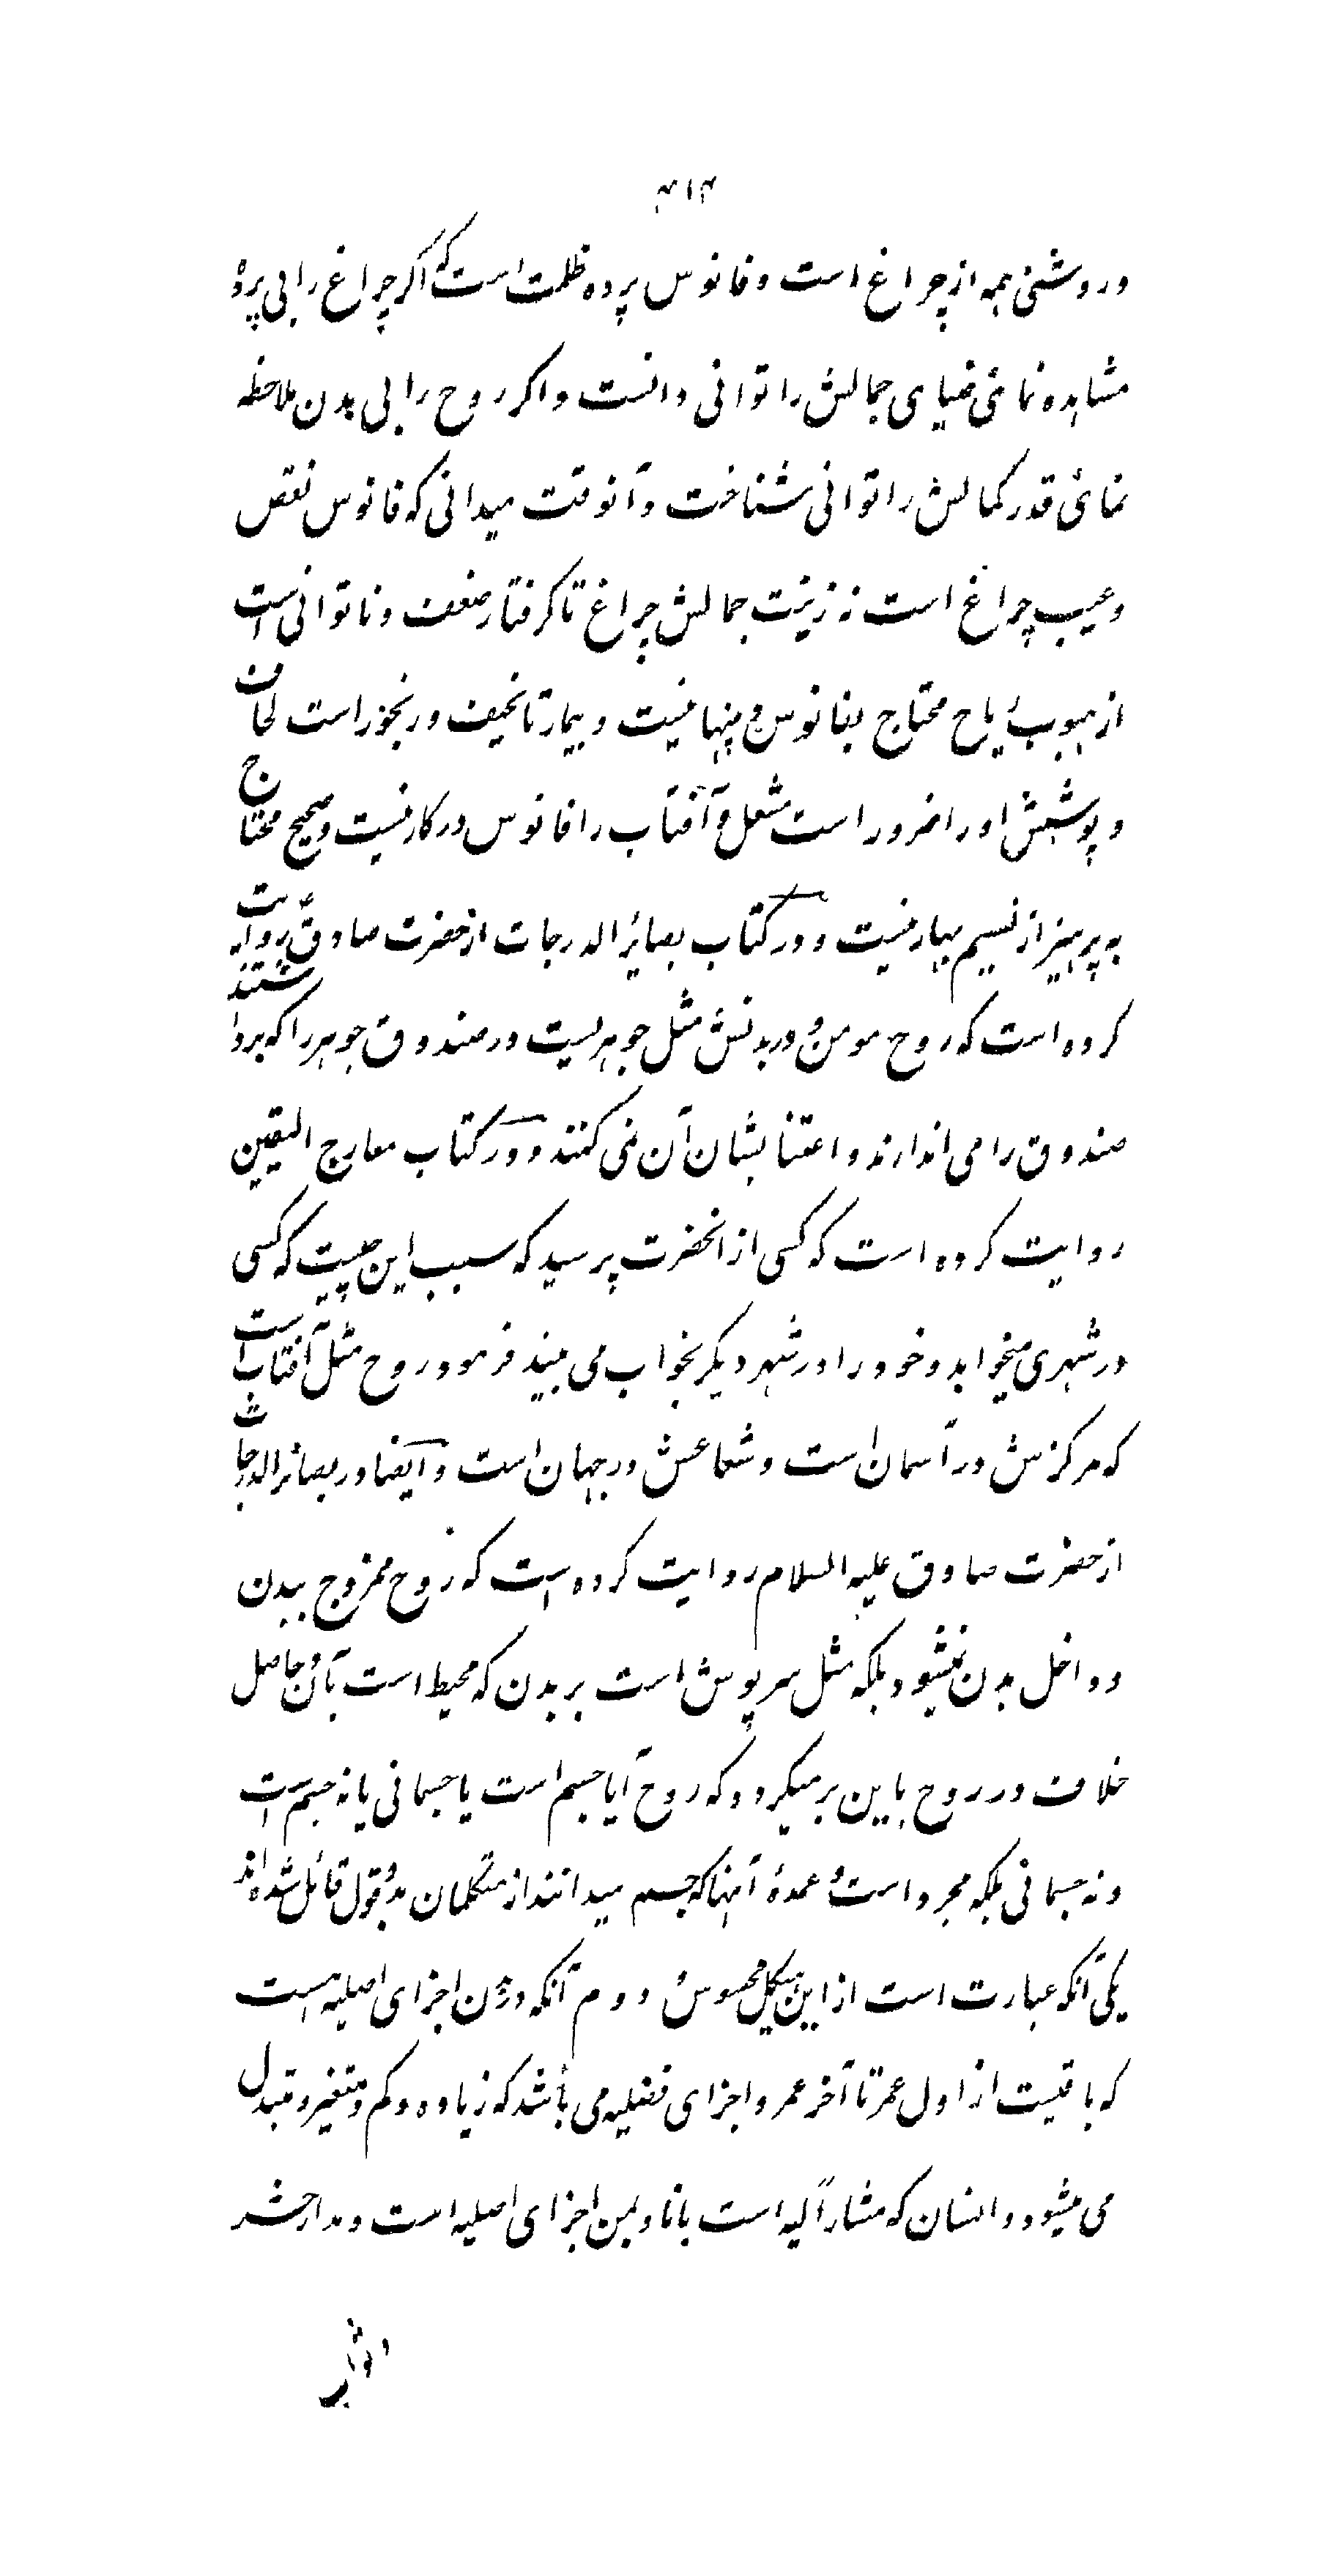 ۴۱۴
و روشنی همه از چراغ است و فانوس پرده ظلمت است که اگر چراغ را بی پرده
مشاهده نمائی ضیای جمالش را توانی دانست و اگر روح را بی بدن ملاحظه
نمائی قدر کمالش را توانی شناخت و آنوقت میدانی که فانوس نقص
و عیب چراغ است نه زینت جمالش چراغ تا گرفتار ضعف و ناتوانی است
از هبوب ریاح محتاج بفانوس و پنها نیست و بیمار تا نحیف و رنجور است لحاف
و پوشش او را ضرور است مشعل و آفتاب را فانوس در کار نیست و صحیح محتاج
به پرهیز از نسیم بهار نیست و در کتاب بصائر الدرجات از حضرت صادقؑ روایت
کرده است که روح مومن در بدنش مثل جوهریست در صندوق جوهر را که برداشتند
صندوق را می اندازند و اعتنا بشان آن نمی کنند و در کتاب معارج الیقین
روایت کرده است که کسی از انحضرت پرسید که سبب این چیست که کسی
در شهری میخوابد و خود را در شهر دیگر بخواب می بیند فرمود روح مثل آفتاب است
که مرکزش در آسمان است و شعاعش در جهان است و ایضا در بصائر الدرجات
از حضرت صادق علیه السلام روایت کرده است که روح ممزوج ببدن
و داخل بدن نمیشود بلکه مثل سرپوش است بر بدن که محیط است بآن و حاصل
خلاف در روح باین برمیگردد که روح آیا جسم است یا جسمانی یا نه جسم است
و نه جسمانی بلکه مجرد است و عمدهٔ آنها که جسم میدانند از متکلمان بدو قول قائل شده اند
یکی آنکه عبارت است از این هیکل محسوس و دوم آنکه در بدن اجزای اصلیه هست
که باقیست از اول عمر تا آخر عمر و اجزای فضلیه می باشد که زیاده و کم و متغیر و متبدل
می میشود و انسان که مشار الیه است بانا و لمن اجزای اصلیه است و مدار حشر